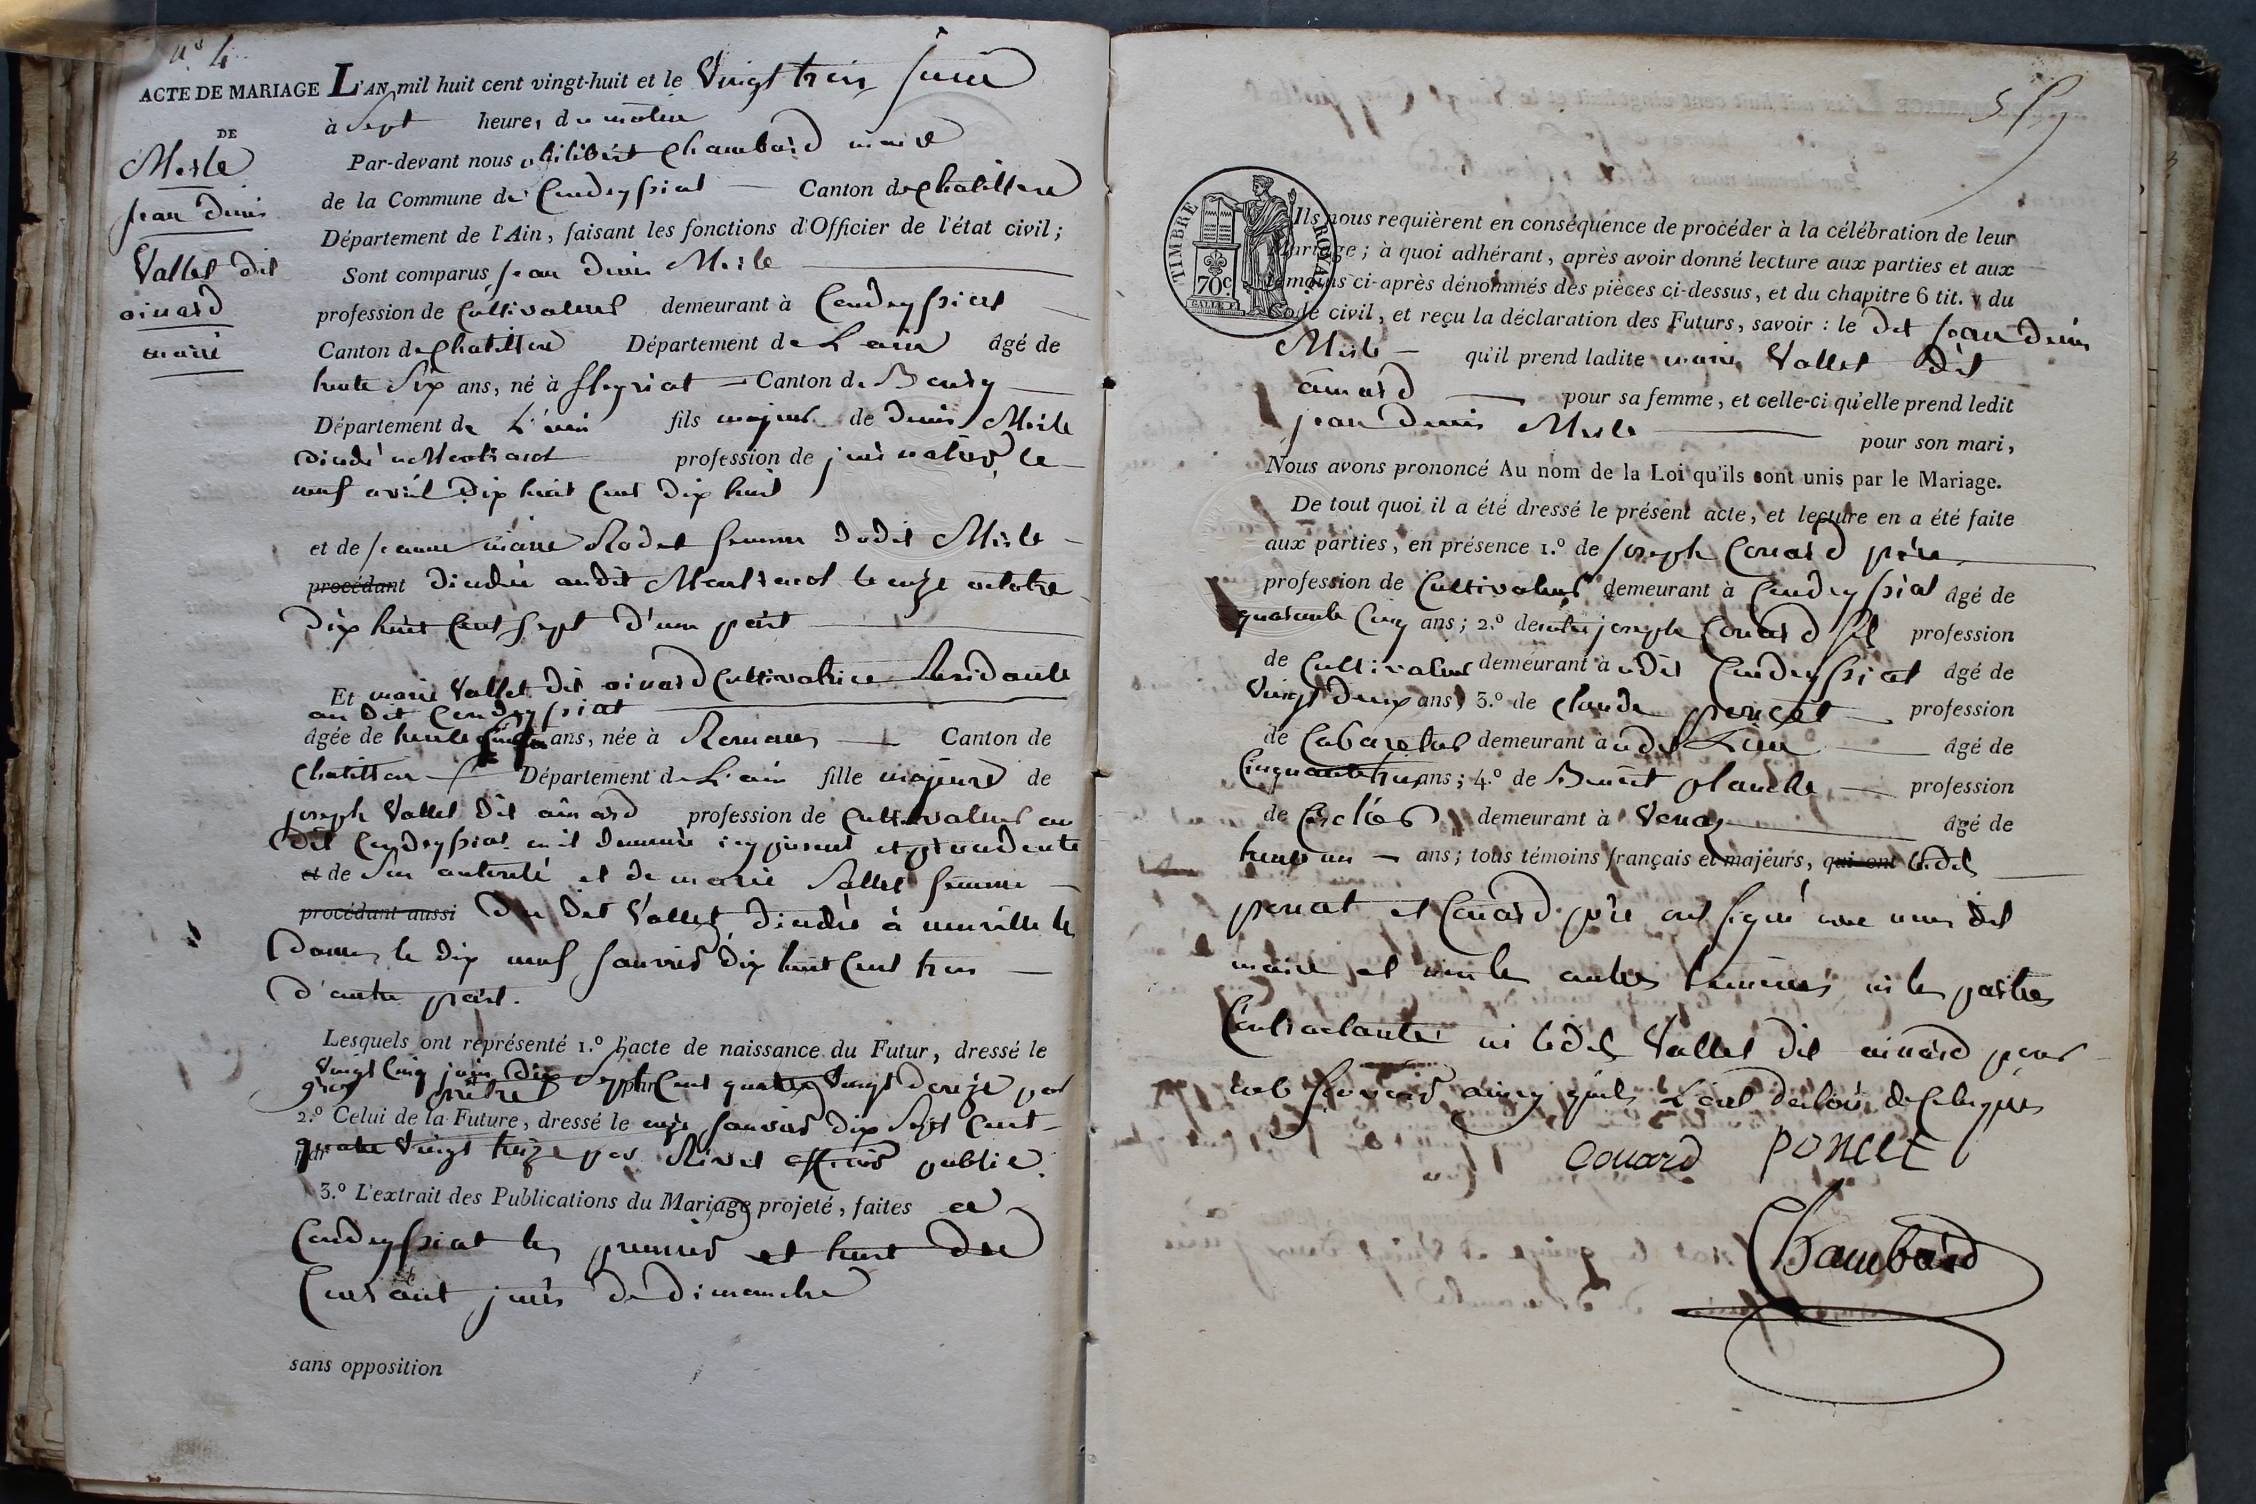 n.° 4
ACTE DE MARIAGE
DE
Merle
jean denis
Vallet dit
ainard
marie
L'AN mil huit cent vingt-huit et le Vingt trois juin
à Sept heures du matin
Par-devant nous philibert Chambard maire
de la Commune de Condeyssiat Canton de Chatillon
Département de l'Ain, faisant les fonctions d'Officier de l'état civil;
Sont comparus, jean denis Merle
profession de Cultivateur demeurant à Condeyssiat
Canton de Chatillon Département de L'ain âgé de
trente Six ans, né à fleyriat Canton de Bourg
Département de L'ain fils majeur de denis Merle
décédé à Montracol profession de journalier le
neuf avril dix huit Cent dix huit
et de jeanne marie Rodet femme dudit Merle
procédant décédée audit Montracol le onze octobre
dix huit Cent Sept d'une part
Et marie Vallet dit ainard Cultivatrice Residante
au dit Condeyssiat
âgée de trente Cinq ans, née à Romans Canton de
Chatillon Département de L'ain fille majeure de
joseph Vallet dit ainard profession de Cultivateur au
dit Condeyssiat où il demeure icy présent et procedente
et de Son autorité et de marie Vallet femme
procédant aussi du dit Vallet, décédée à neuville les
Dames le dix neuf janvier dix huit Cent trois
d'autre part.
Lesquels ont représenté 1.° l'acte de naissance du Futur, dressé le
Vingt Cinq juin dix Sept Cent quatre Vingt douze par
gros prêtre
2.° Celui de la Future, dressé le onze janvier dix Sept Cent
quatre Vingt treize par Rivet officier public
3.° L'extrait des Publications du Mariage projeté, faites a
Condeyssiat les premier et huit du
Courant jours de dimanche
sans opposition
TIMBRE ROYAL
70c
Ils nous requièrent en conséquence de procéder à la célébration de leur
mariage; à quoi adhérant, après avoir donné lecture aux parties et aux
témoins ci-après dénommés des pièces ci-dessus, et du chapitre 6 tit. v du
Code civil, et reçu la déclaration des Futurs, savoir : le dit jean denis
Merle qu'il prend ladite marie Vallet dit
ainard pour sa femme, et celle-ci qu'elle prend ledit
jean denis Merle pour son mari,
Nous avons prononcé Au nom de la Loi qu'ils sont unis par le Mariage.
De tout quoi il a été dressé le présent acte, et lecture en a été faite
aux parties, en présence 1.° de joseph Couard père
profession de Cultivateur demeurant à Condeyssiat âgé de
quarante Cinq ans; 2.° de autre joseph Couard fils profession
de Cultivateur demeurant à udit Condeyssiat âgé de
Vingt deux ans; 3.° de claude poncet profession
de Cabaretier demeurant à udit Lieu âgé de
Cinquante trois ans; 4.° de Benoit planche profession
de Cerclier demeurant à Vonas âgé de
trente un ans; tous témoins français et majeurs, qui ont ledit
poncet et Couard père ont signé avec nous dit
maire et non les autres témoins ni les parties
Contractantes ni ledit Vallet dit ainard pour
ne le Savoir ainsy qu'ils L'ont déclaré de Ce requis
couard PONCET
Chambard